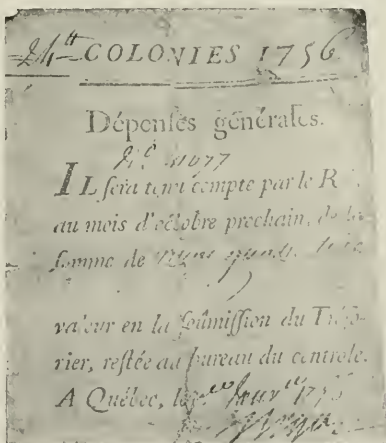 24ᵗᵗ COLONIES 1756
Dépenſes générales.
IL ſera tenu compte par le R
au mois d'octobre prochain, de la
ſomme de Vingt quatre livres
valeur en la ſoûmiſſion du Tréſo-
rier, reſtée au bureau du controle.
A Québec, le 1756